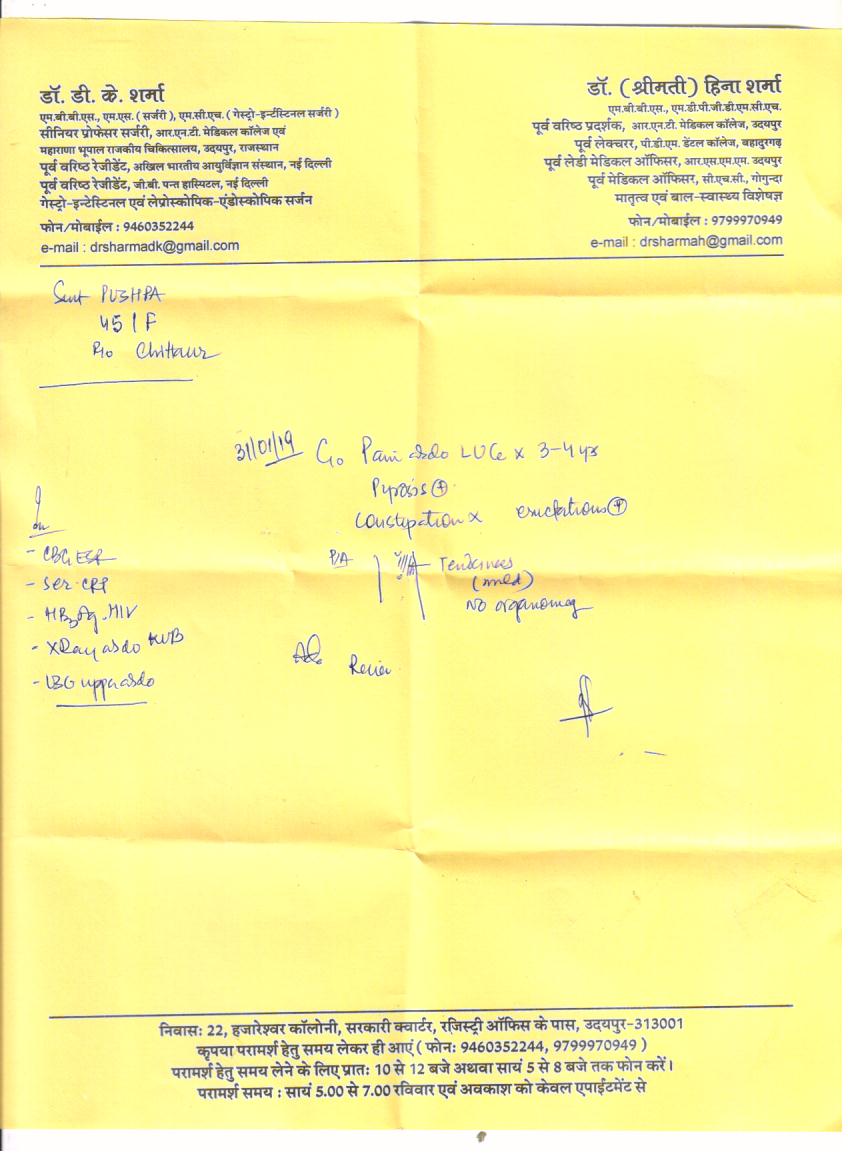 डॉ. डी. के. शर्मा
एम.बी.बी.एस., एम.एस. ( सर्जरी ), एम.सी.एच. ( गेस्ट्रो-इन्टेंस्टिनल सर्जरी )
सीनियर प्रोफेसर सर्जरी, आर.एन.टी. मेडिकल कॉलेज एवं
महाराणा भूपाल राजकीय चिकित्सालय, उदयपुर, राजस्थान
पूर्व वरिष्ठ रेजीडेंट, अखिल भारतीय आयुर्विज्ञान संस्थान, नई दिल्ली
पूर्व वरिष्ठ रेजीडेंट, जी.बी. पन्त हास्पिटल, नई दिल्ली
गेस्ट्रो-इन्टेस्टिनल एवं लेप्रोस्कोपिक-एंडोस्कोपिक सर्जन
फोन/मोबाईल : 9460352244
e-mail : drsharmadk@gmail.com
डॉ. (श्रीमती) हिना शर्मा
एम.बी.बी.एस., एम.डी.पी.जी.डी.एम.सी.एच.
पूर्व वरिष्ठ प्रदर्शक, आर.एन.टी. मेडिकल कॉलेज, उदयपुर
पूर्व लेक्चरर, पी.डी.एम. डेंटल कॉलेज, बहादुरगढ़
पूर्व लेडी मेडिकल ऑफिसर, आर.एस.एम.एम. उदयपुर
पूर्व मेडिकल ऑफिसर, सी.एच.सी., गोगुन्दा
मातृत्व एवं बाल-स्वास्थ्य विशेषज्ञ
फोन/मोबाईल : 9799970949
e-mail : drsharmah@gmail.com
Smt PUSHPA
45 / F
R/o Chittaur
31/01/19 C/o Pain abdo x 3-4 yrs
Pyrosis ⊕
Constipation x eructations ⊕
P/A Tenderness
(mild)
No organomeg
- CBC, ESR
- Ser. CRP
- HBsAg. HIV
- XRay abdo KUB
- USG upper abdo
Review
निवासः 22, हजारेश्वर कॉलोनी, सरकारी क्वार्टर, रजिस्ट्री ऑफिस के पास, उदयपुर-313001
कृपया परामर्श हेतु समय लेकर ही आएं ( फोनः 9460352244, 9799970949 )
परामर्श हेतु समय लेने के लिए प्रातः 10 से 12 बजे अथवा सायं 5 से 8 बजे तक फोन करें।
परामर्श समय : सायं 5.00 से 7.00 रविवार एवं अवकाश को केवल एपाईटमेंट से